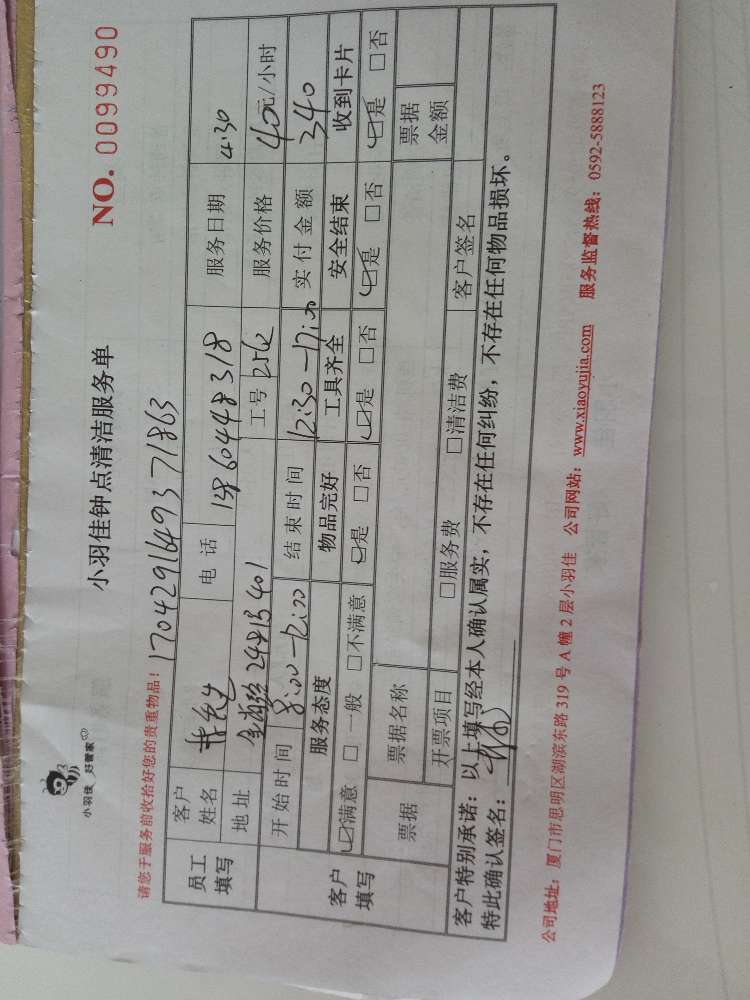 小羽佳 好管家
小羽佳钟点清洁服务单
NO. 0099490
请您于服务前收拾好您的贵重物品！1704291649371863
员工填写 客户姓名 先生 电话 服务日期 4.30
地址 248 401 工号 服务价格 40元/小时
客户填写 开始时间 8:00-12:00 结束时间 12:30-17:00 实付金额 340
服务态度 物品完好 工具齐全 安全结束 收到卡片
☑满意 □一般 □不满意 ☑是 □否 ☑是 □否 ☑是 □否 ☑是 □否
票据 票据名称 票据金额
开票项目 □服务费 □清洁费 客户签名
客户特别承诺：以上填写经本人确认属实，不存在任何纠纷，不存在任何物品损坏。
特此确认签名：
公司地址：厦门市思明区湖滨东路 319 号 A 幢 2 层小羽佳 公司网站：www.xiaoyujia.com 服务监督热线：0592-5888123